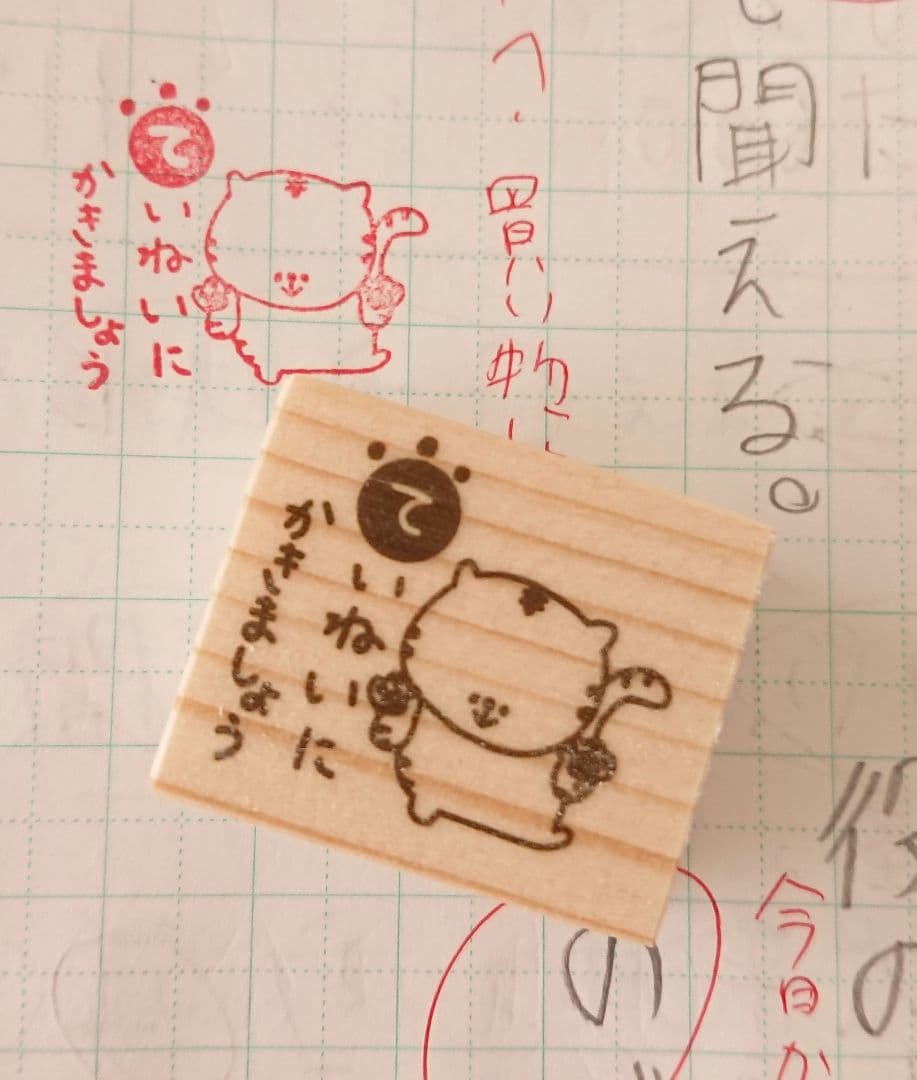 聞える。
へ、買い物に
ていねいに
かきましょう
ていねいに
かきましょう
後の
今日か
の